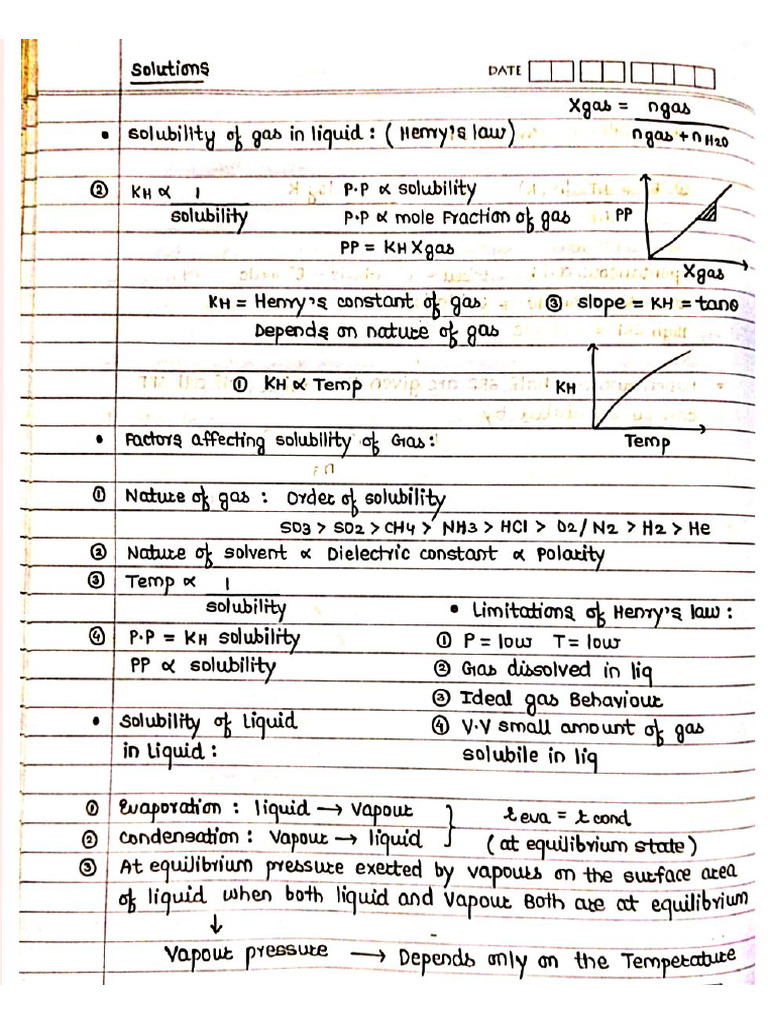 Solutions
DATE
Xgas = ngas / ngas + nH2O
• Solubility of gas in liquid : ( Henry's law )
② KH ∝ 1 / solubility
P.P ∝ solubility
P.P ∝ mole Fraction of gas
PP
PP = KH Xgas
Xgas
KH = Henry's constant of gas
③ slope = KH = tanθ
Depends on nature of gas
① KH ∝ Temp
KH
Temp
• Factors affecting solubility of Gas :
① Nature of gas : Order of solubility
SO3 > SO2 > CH4 > NH3 > HCl > O2 / N2 > H2 > He
② Nature of solvent ∝ Dielectric constant ∝ Polarity
③ Temp ∝ 1 / solubility
④ P.P = KH solubility
PP ∝ solubility
• Limitations of Henry's law :
① P = low T = low
② Gas dissolved in liq
③ Ideal gas Behaviour
④ V.V small amount of gas
solubile in liq
• Solubility of Liquid
in Liquid :
① Evaporation : liquid → Vapour
② Condensation : Vapour → liquid
r eva = r cond
( at equilibrium state )
③ At equilibrium pressure exerted by vapours on the surface area
of liquid when both liquid and Vapour Both are at equilibrium
↓
Vapour pressure → Depends only on the Temperature